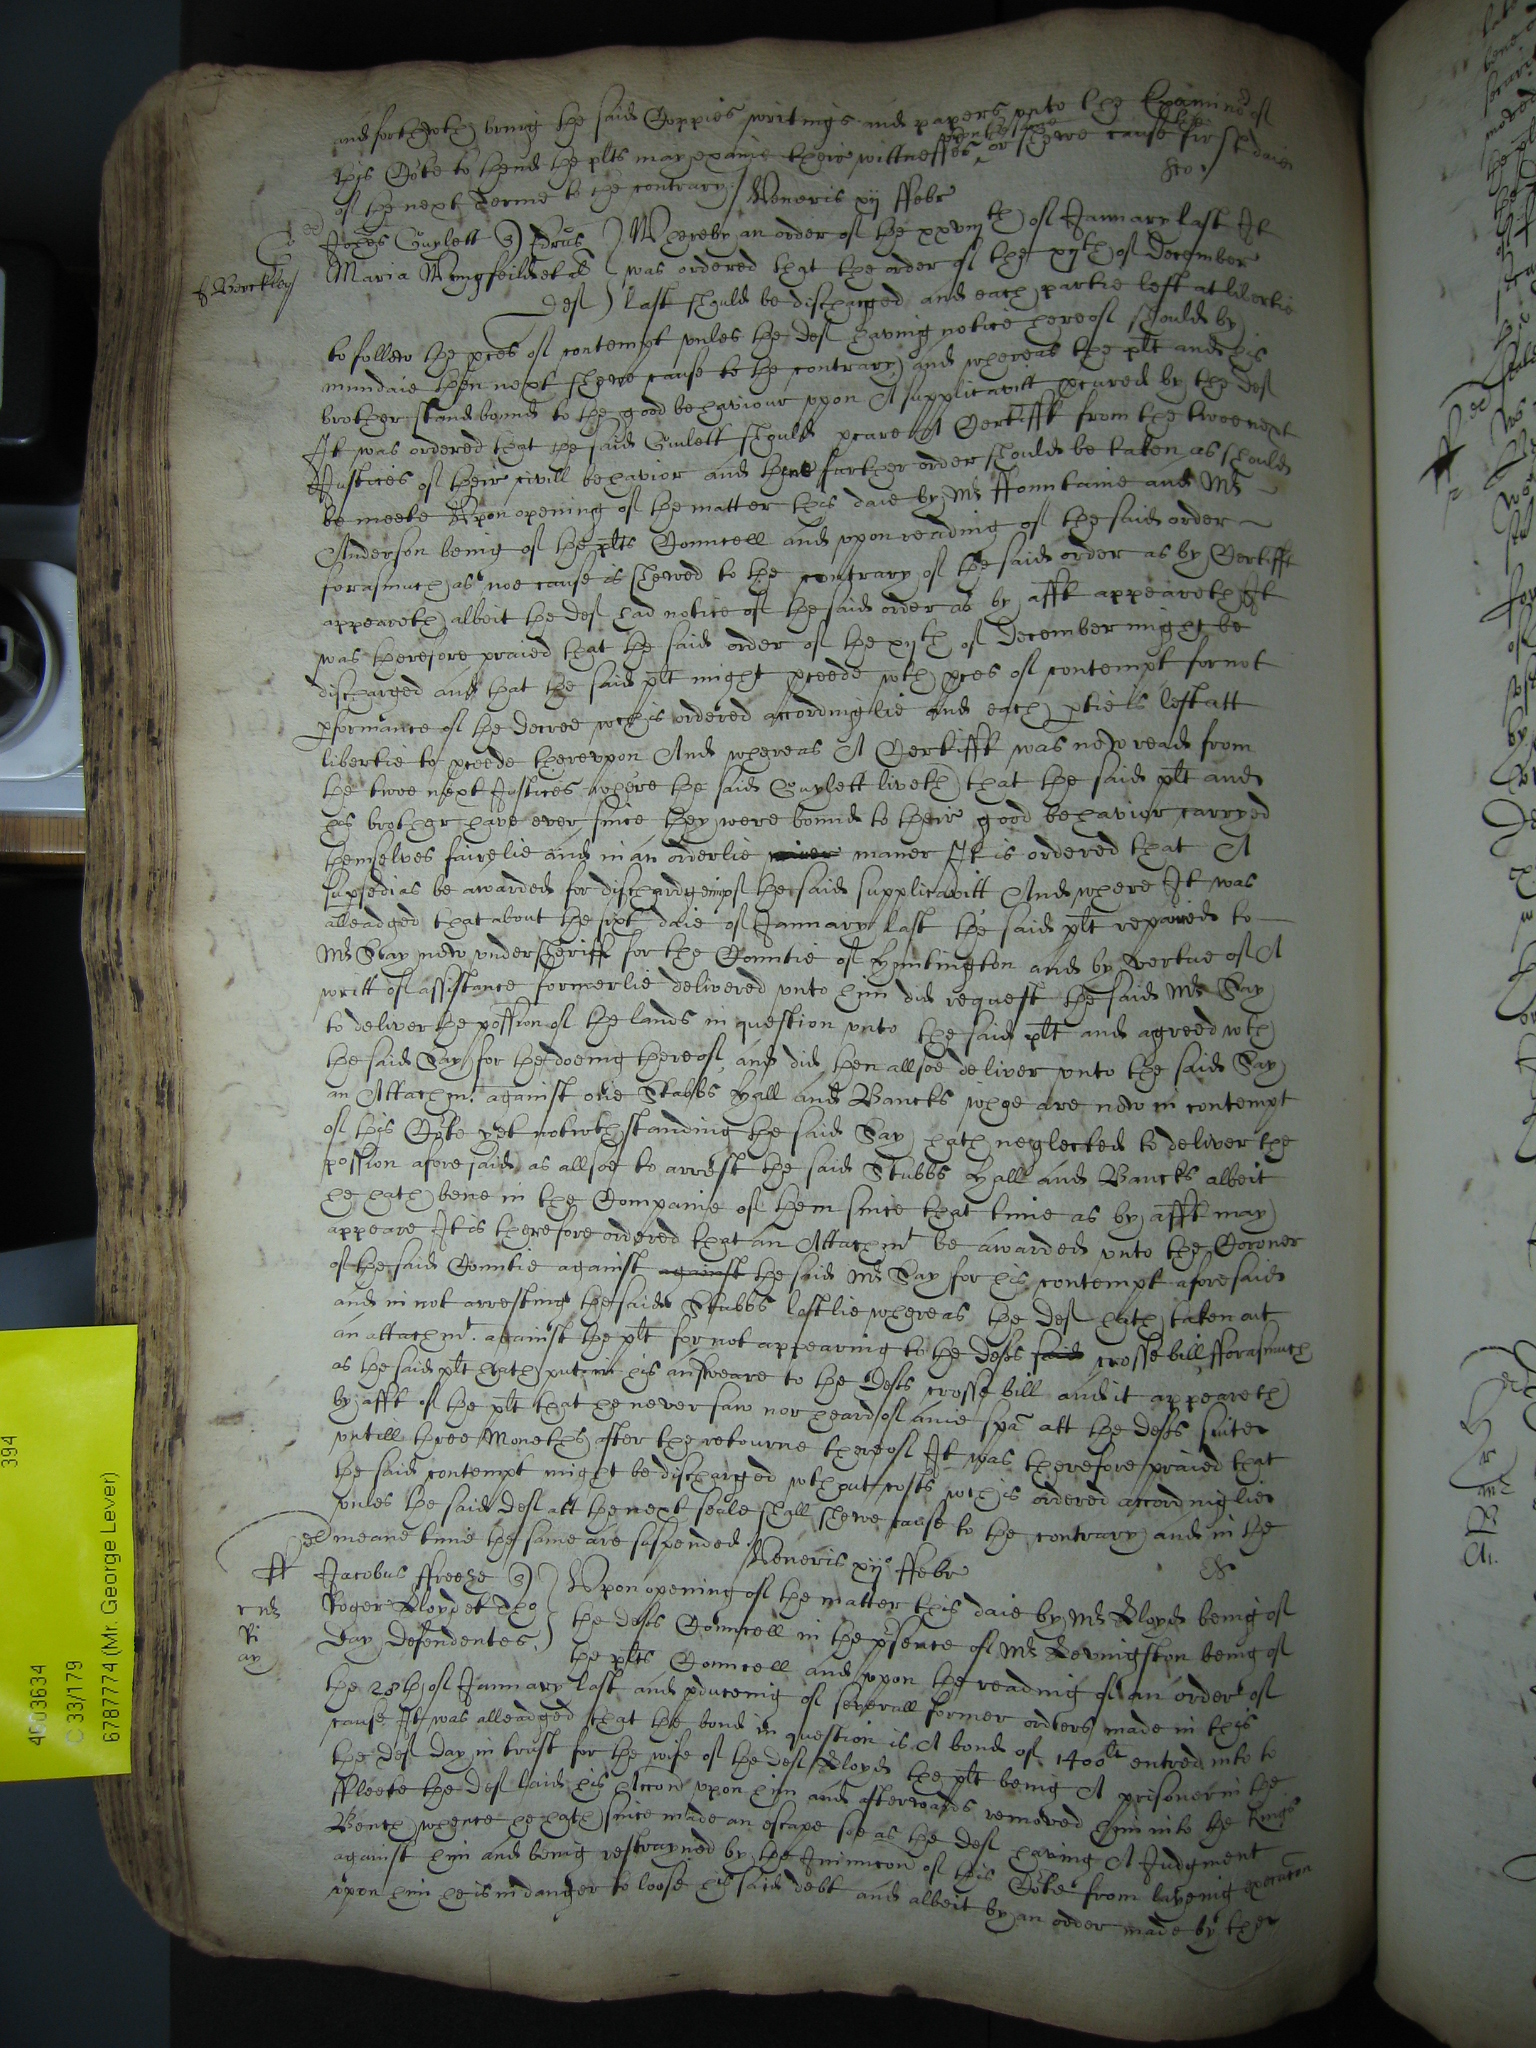 and forthwth bring the said Coppies writings and papers unto the Examinor of
this Co͠rte to thend the plts may exa͠ie their wittnesses or shewe cause first daie
of the next Terme to the contrary
Veneris xij ffebr
Johes Guylett
Maria Wingfeild et al
def
Whereby an order of the xxviijth of January last It
was ordered that the order of the xijth of December
last should be discharged and each partie left at libertie
to follow the pces of contempt unles the def having notice hereof should by
mundaie then next shewe cause to the contrary and whereas the plt and his
brother stand bound to the good behaviour upon A supplicavitt pcured by the def
It was ordered that the said Guylett should pcure A Certifft from the twoe next
Justices of their civill behavior and then further order should be taken as should
be meete Upon opening of the matter this daie by Mr ffountaine and Mr
Anderson being of the plts Councell and upon reading of the said order
forasmuch as noe cause is shewed to the contrary of the said order as by Certifft
appeareth albeit the def had notice of the said order as by afft appeareth It
was therefore praied that the said order of the xijth of December might be
discharged and that the said plt might pceede wth pces of contempt for not
pformance of the decree wch is ordered accordinglie and each ptie is left att
libertie to pceede thereupon And whereas A Certifft was now read from
the twoe next Justices where the said Guylett liveth that the said plt and
his brother have ever since they were bound to their good behavior carryed
themselves fairelie and in an orderlie maner It is ordered that A
supsedias be awarded for dischardgeing of the said supplicavitt And where It was
alleadged that about the sixt daie of January last the said plt repaired to
Mr Say now undersheriff for the Countie of Huntington and by vertue of A
writt of assistance formerlie delivered unto him did request the said Mr Say
to deliver the possion of the lands in question unto the said plt and agreed wth
the said Say for the doeing thereof and did then allsoe deliver unto the said Say
an Attachmt against one Stubbs Hall and Bancks whoe are now in contempt
of this Co͠rte yet notwthstanding the said Say hath neglected to deliver the
possion aforesaid as allsoe to arrest the said Stubbs Hall and Bancks albeit
he hath bene in the Companie of them since that time as by afft may
appeare It is therefore ordered that an Attachmt be awarded unto the Coroner
of the said Countie against against the said Mr Say for his contempt aforesaid
and in not arresting the said Stubbs lastlie whereas the def hath taken out
an attachmt against the plt for not appearing to the defts said crosse bill fforasmuch
as the said plt hath put in his answeare to the Defts crosse bill and it appeareth
by afft of the plt that he never saw nor heard of anie spa att the defts suite
untill three Moneths after the retourne thereof It was therefore praied that
the said contempt might be discharged wthout costs wch is ordered accordinglie
unles the said def att the next seale shall shewe cause to the contrary and in the
meane time the same are suspended
Veneris xijo ffebr
Jacobus ffreeze
Roger Lloyd et
Day Defendentes
Upon opening of the matter this daie by Mr Lloyd being of
the defts Councell in the psence of Mr Levingston being of
the plts Councell and upon the reading of an order of
the 28th of January last and pduceing of severall former orders made in this
cause It was alleadged that the bond in question is A bond of 1400lt entred into to
the def Day in trust for the wife of the def Lloyd the plt being A prisoner in the
ffleete the def laid his Accon upon him and afterwards removed him into the Kings
Bench whence he hath since made an escape soe as the def having A Judgment
against him and being restrayned by the Iniuncon of this Co͠rte from takeing execucon
upon him he is in danger to loose his said debt and albeit by an order made by the
394
4003634
C 33/179
6787774 (Mr. George Lever)